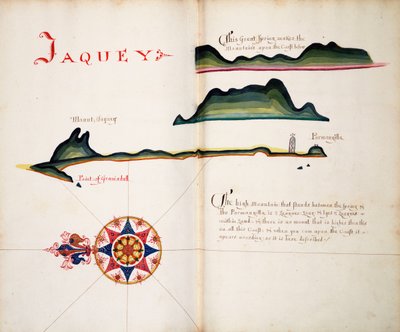 JAQUEY
This Great Spring makes the
Mountain upon the Coast below
Mount Jaquey
Parmangilla
Point of Gramadall
The high Mountain that stands between the Spring &
the Parmangilla is 2 Leagues Long & lyes 2 Leagues
within Land & there is no mount that is higher than this
in all this Coast & when you com upon the Coast it
apears according as it is here described